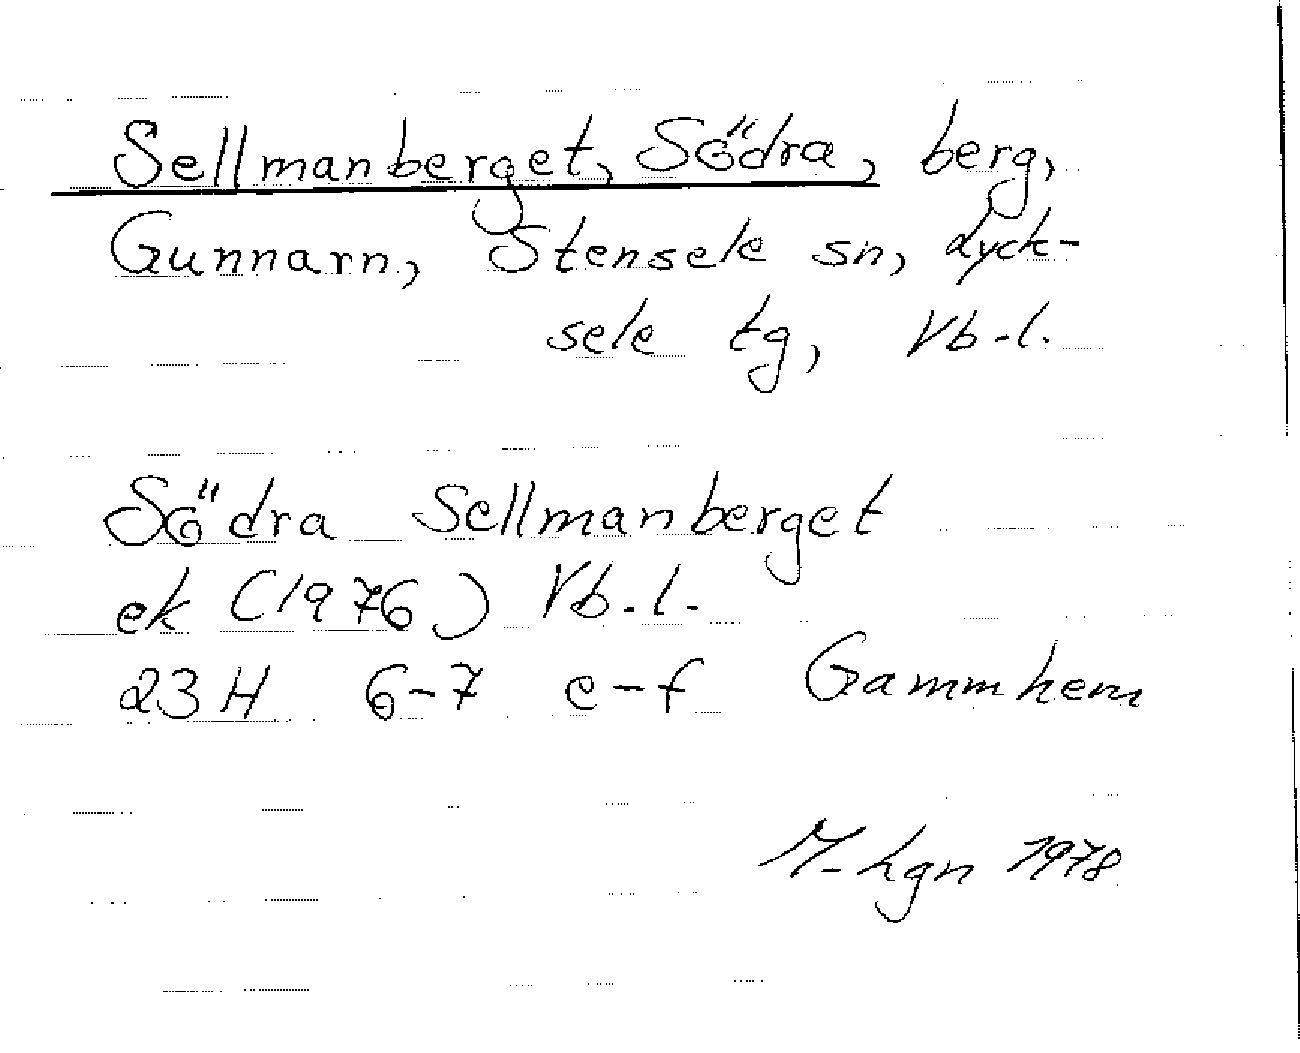 Sellmanberget, Södra, berg,
Gunnarn, Stensele sn, Lyck-
sele tg, Vb.l.
Södra Sellmanberget
ek (1976) Vb.l.
23H 6-7 e-f Gammhem
M-hgn 1978